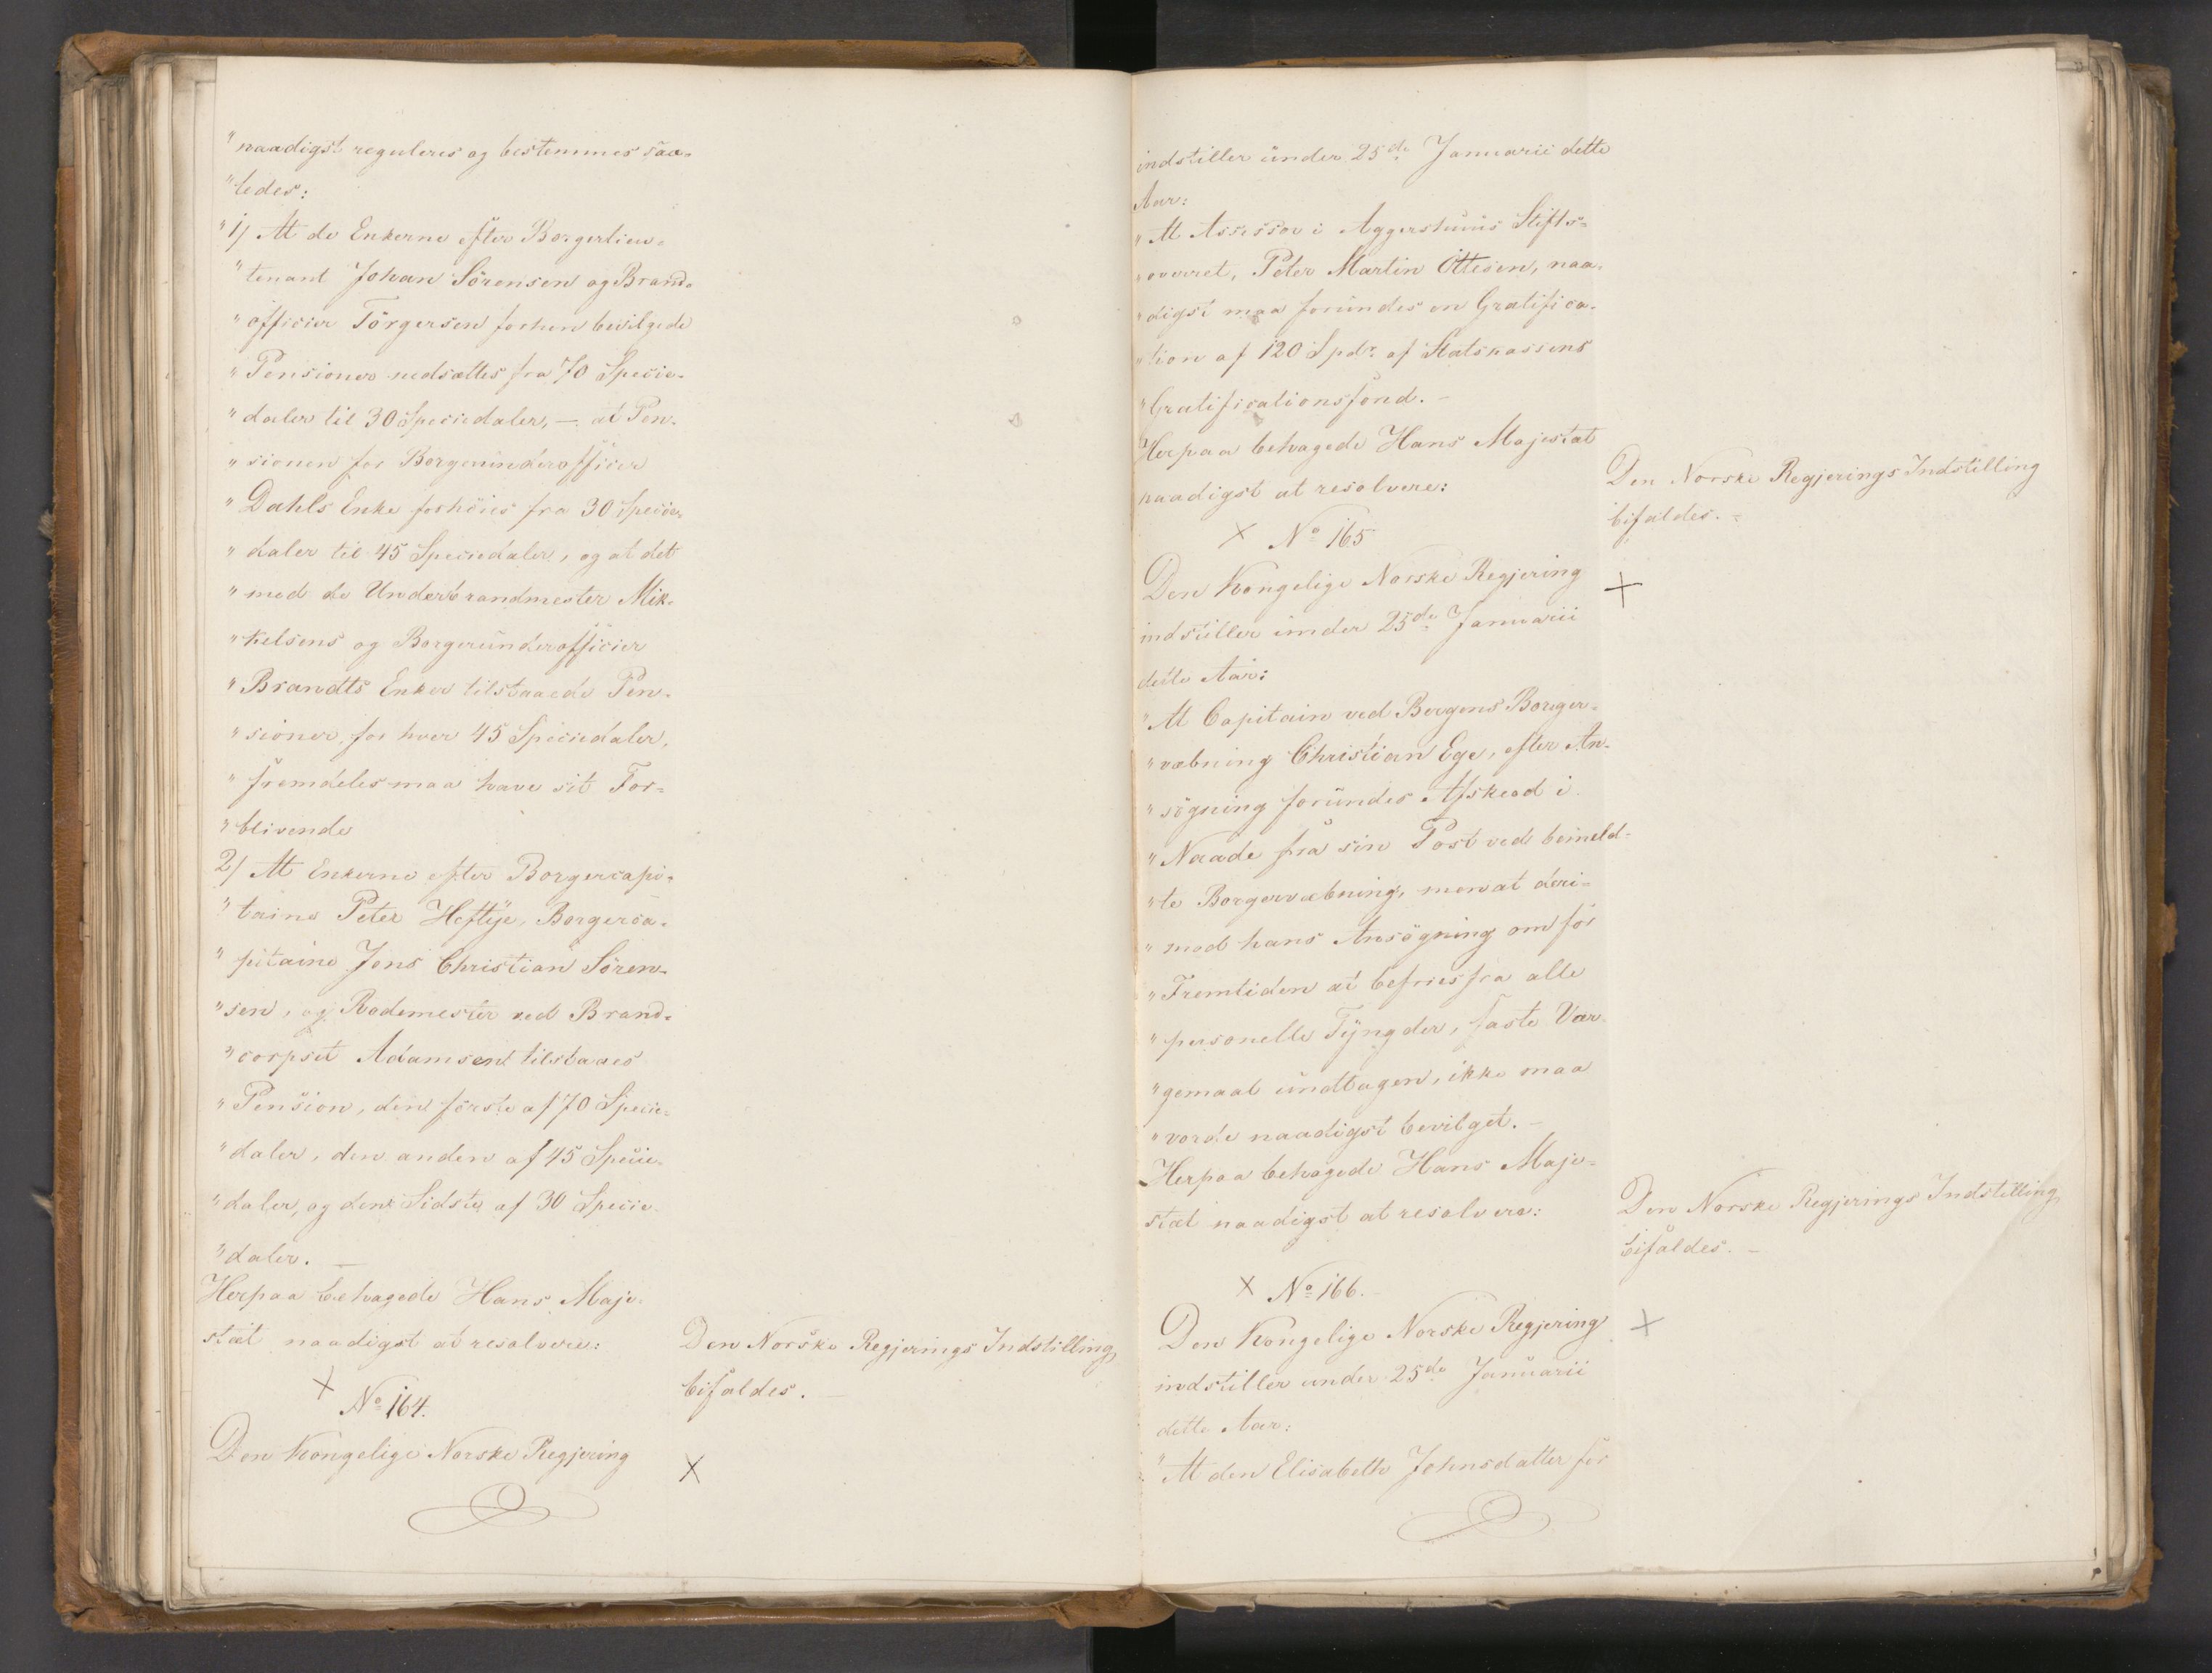 "naadigst reguleres og bestemmes saa-
"ledes:
"1/ At de Enkerne efter Borgerlieu-
"tenant Johan Sörensen og Brand-
"officier Törgersen forhen bevilgede
"Pensioner nedsættes fra 70 Specie-
"daler til 30 Speciedaler, – at Pen-
"sionen for Borgerunderofficier
"Dahls Enke forhöies fra 30 Specie-
"daler til 45 Speciedaler, og at det
"med de Underbrandmester Mik-
"kelsens og Borgerunderofficier
"Brandtts Enker tilstaaede Pen-
"sioner, for hver 45 Speciedaler,
"fremdeles maa have sit For-
"blivende
2/ At Enkerne efter Borgercapi-
"taine Peter Heftÿe, Borgerca-
"pitaine Jens Christian Sören-
"sen, og Rodemester ved Brand-
"corpset Adamsen tilstaaes
"Pension, den förste af 70 Specie-
"daler, den anden af 45 Specie-
"daler, og den Sidste af 30 Specie-
"daler. –
Herpaa behagede Hans Maje-
stæt naadigst at resolvere:
Den Norske Regjerings Indstilling
bifaldes. –
× No 164.
Den Kongelige Norske Regjering
×
indstiller under 25de Januarii dette
Aar:
"At Assessor i Aggershuus Stifts-
"overret, Peter Martin Ottesen, naa-
"digst maa forundes en Gratifica-
"tion af 120 Spdr. af Statskassens
"Gratificationsfond. –
Herpaa behagede Hans Majestæt
naadigst at resolvere:
Den Norske Regjerings Indstilling
bifaldes. –
× No 165
Den Kongelige Norske Regjering
×
indstiller under 25de Januarii
dette Aar:
"At Capitain ved Bergens Borger-
"væbning Christian Ege, efter An-
"sögning forundes Afskeed i
"Naade fra sin Post ved bemeld-
"te Borgervæbning, men at deri-
"mod hans Ansögning om for
"Fremtiden at befries fra alle
"personelle Tÿngder, faste Vær-
"gemaal undtagen, ikke maa
"vorde naadigst bevilget. –
Herpaa behagede Hans Maje-
stæt naadigst at resolvere:
Den Norske Regjerings Indstilling
bifaldes. –
× No 166. –
Den Kongelige Norske Regjering
×
indstiller under 25de Januarii
dette Aar:
"At den Elisabethe Johnsdatter for